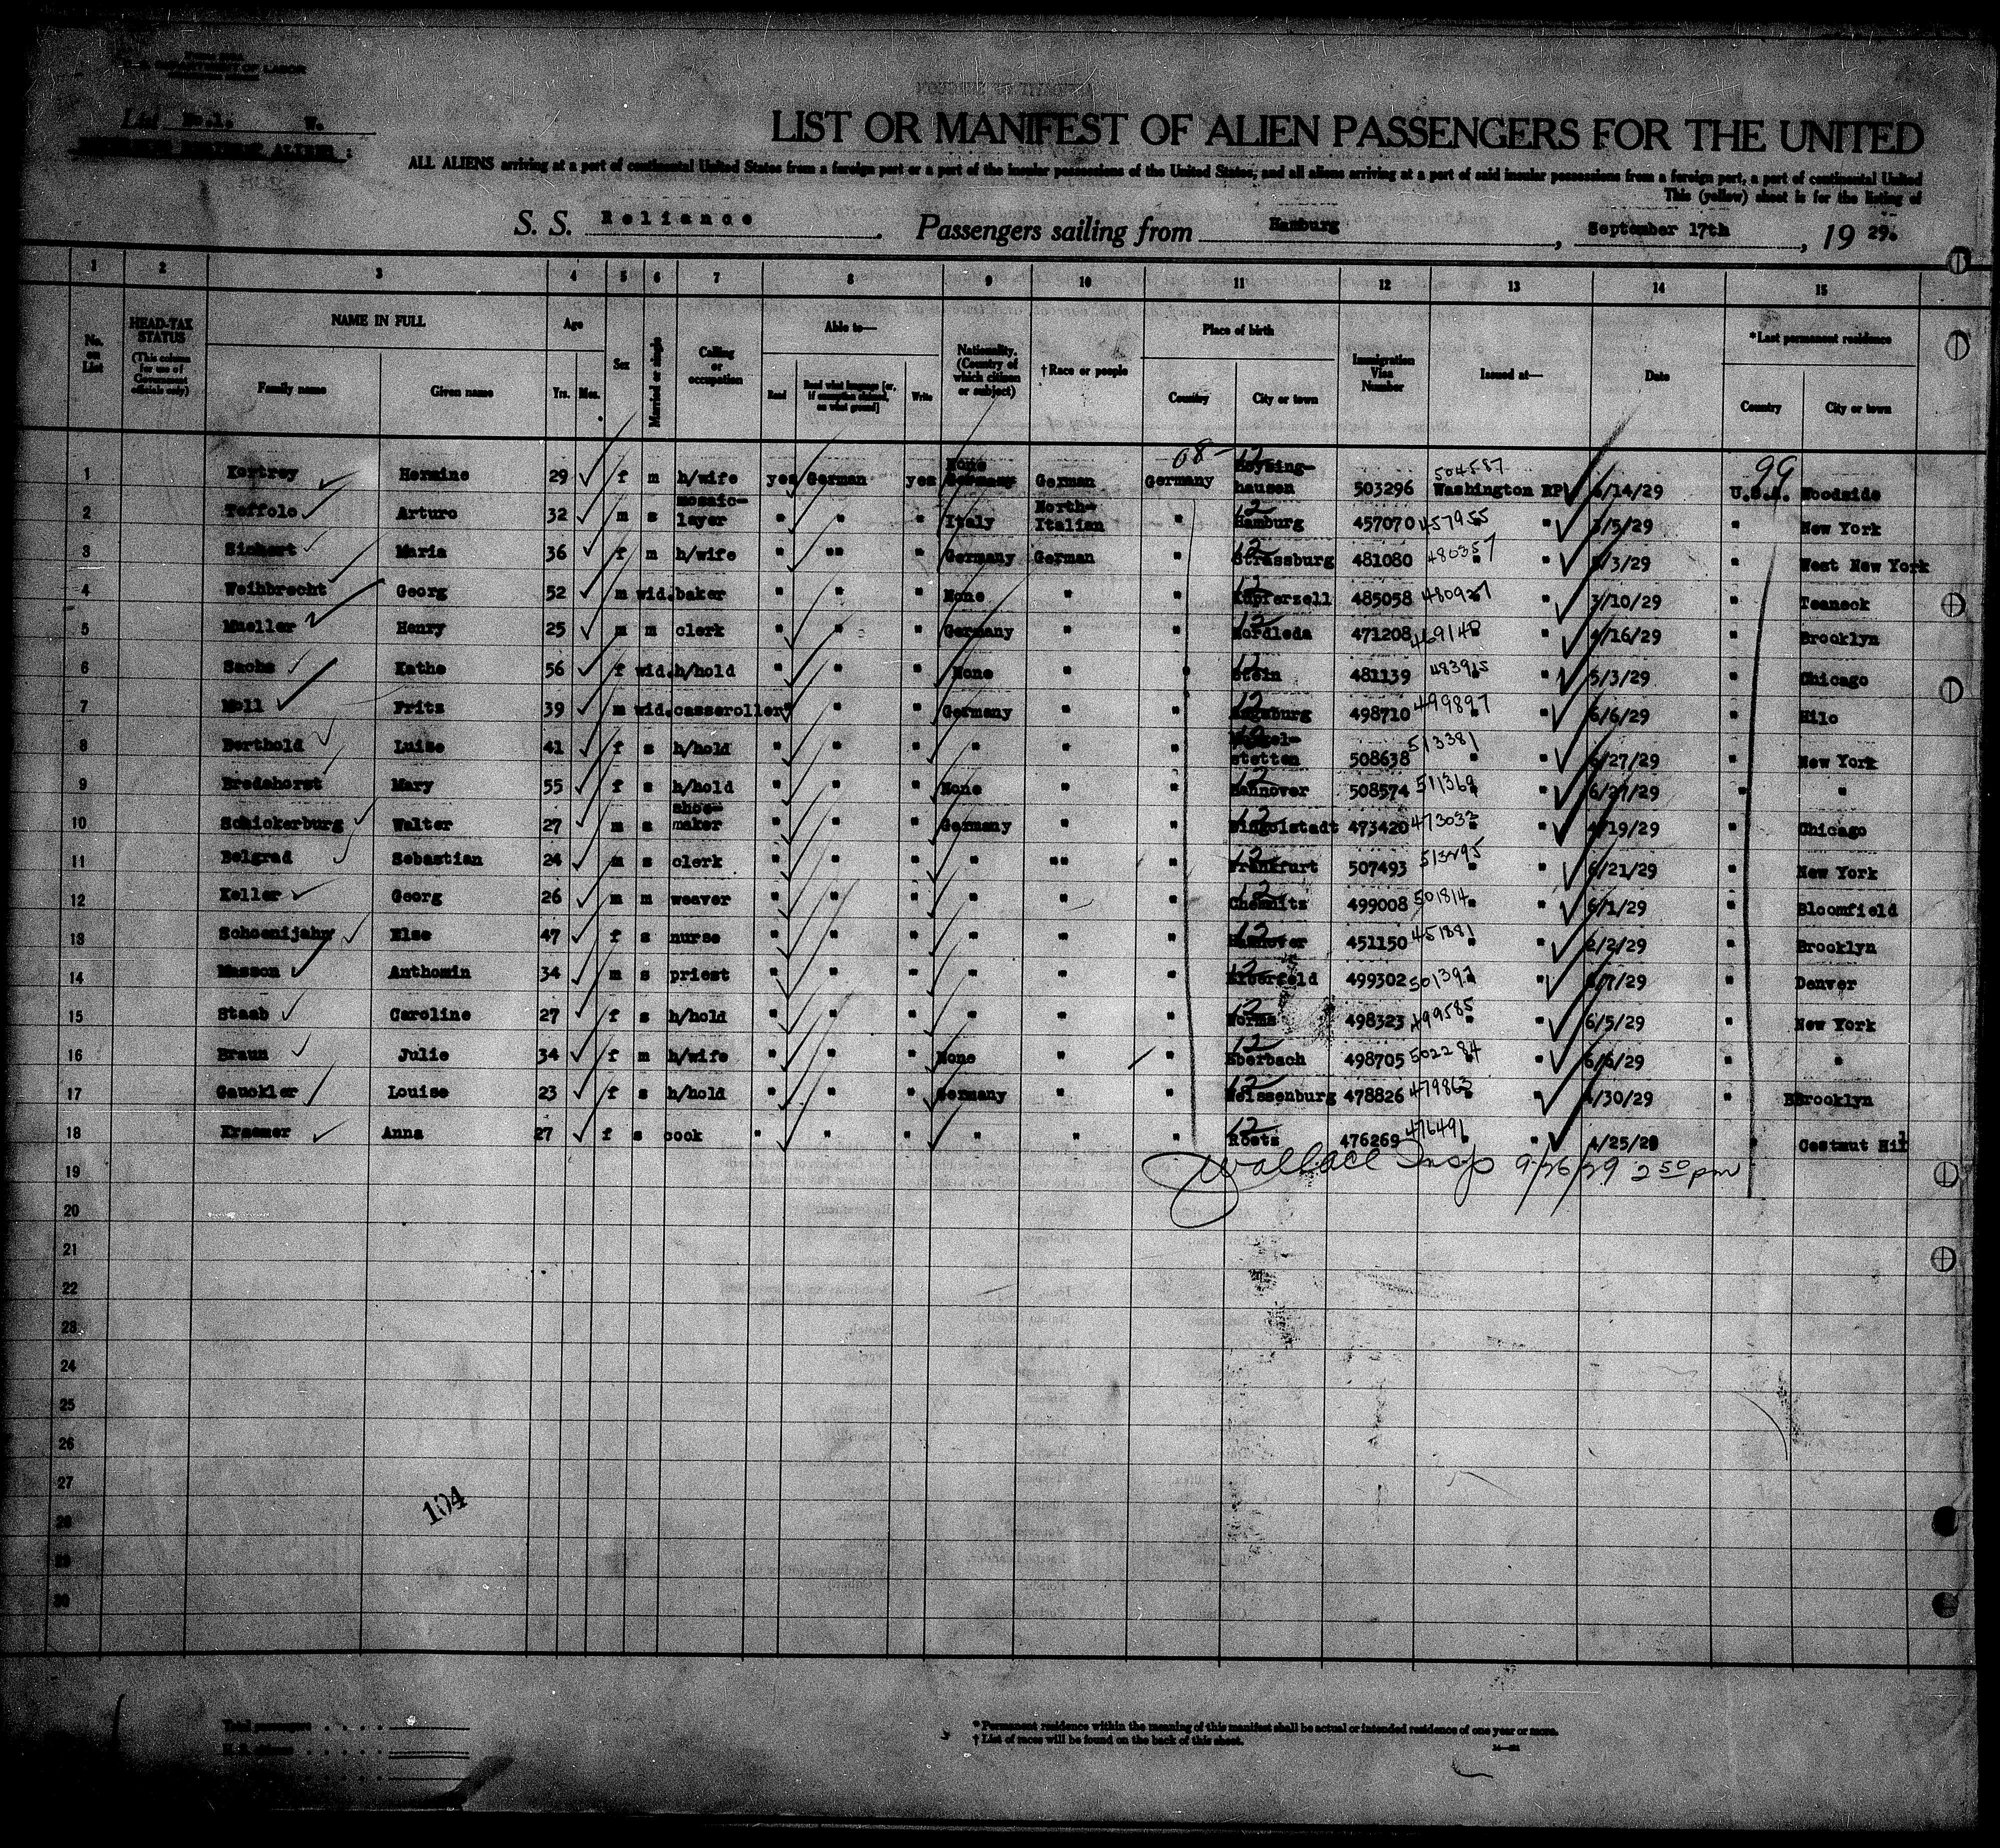 U. S. DEPARTMENT OF LABOR
List No.1. W.
LIST OR MANIFEST OF ALIEN PASSENGERS FOR THE UNITED
ALL ALIENS arriving at a port of continental United States from a foreign port or a port of the insular possessions of the United States, and all aliens arriving at a port of said insular possessions from a foreign port, a port of continental United
This (yellow) sheet is for the listing of
S. S. Reliance. Passengers sailing from Hamburg, September 17th, 19 29.
1 2 3 4 5 6 7 8 9 10 11 12 13 14 15
No. on List
HEAD-TAX STATUS (This column for use of Government officials only)
NAME IN FULL Family name Given name
Age Yrs. Mos.
Sex
Married or single
Calling or occupation
Able to— Read Read what language [or, if exemption claimed, on what ground] Write
Nationality. (Country of which citizen or subject)
†Race or people
Place of birth Country City or town
Immigration Visa Number
Issued at—
Date
*Last permanent residence Country City or town
1 Hermine 29 f m h/wife yes German yes None Germany German 08- Germany hausen 503296 504587 Washington RP 6/14/29 99 U.S.A. Woodside
2 Toffolo Arturo 32 m s mosaic-layer " " " Italy North-Italian " Hamburg 457070 457955 " 3/5/29 " New York
3 Sichert Maria 36 f m h/wife " "" " Germany German " Strassburg 481080 480357 " 5/3/29 " West New York
4 Weihbrecht Georg 52 m wid. baker " " " None " " 485058 " 3/10/29 " Teaneck
5 Mueller Henry 25 m m clerk " " " Germany " " 471208 " 4/16/29 " Brooklyn
6 Sachs Kathe 56 f wid. h/hold " " " None " " Stein 481139 " 5/3/29 " Chicago
7 Moll Fritz 39 m wid. casseroller " " " Germany " " Augsburg 498710 499897 " 6/6/29 " Hilo
8 Berthold Luise 41 f s h/hold " " " " " " stetten 508638 513381 " 6/27/29 " New York
9 Bredehorst Mary 55 f s h/hold " " " None " " Hannover 508574 511369 " 6/27/29 " "
10 Schickerburg Walter 27 m s shoe-maker " " " Germany " " 473420 473033 " 4/19/29 " Chicago
11 Belgrad Sebastian 24 m s clerk " " " " "" " Frankfurt 507493 " 6/21/29 " New York
12 Keller Georg 26 m m weaver " " " " " " Chemnitz 499008 501814 " 6/1/29 " Bloomfield
13 Schoenijahn Else 47 f s nurse " " " " " " Hannover 451150 451881 " 2/2/29 " Brooklyn
14 Masson Anthomin 34 m s priest " " " " " " Elberfeld 499302 501397 " 6/7/29 " Denver
15 Staab Caroline 27 f s h/hold " " " " " " Worms 498323 499585 " 6/5/29 " New York
16 Braun Julie 34 f m h/wife " " " None " " Eberbach 498705 502284 " 6/6/29 " "
17 Gauckler Louise 23 f s h/hold " " " Germany " " Weissenburg 478826 479863 " 4/30/29 " Brooklyn
18 Kraemer Anna 27 f s cook " " " " " " 476269 476491 " 4/25/29 " Cestnut Hil
19 Wallace Insp 9/26/29 2 50 pm
20
21
22
23
24
25
26
27
28
29
30
104
Total passengers
*Permanent residence within the meaning of this manifest shall be actual or intended residence of one year or more.
†List of races will be found on the back of this sheet.